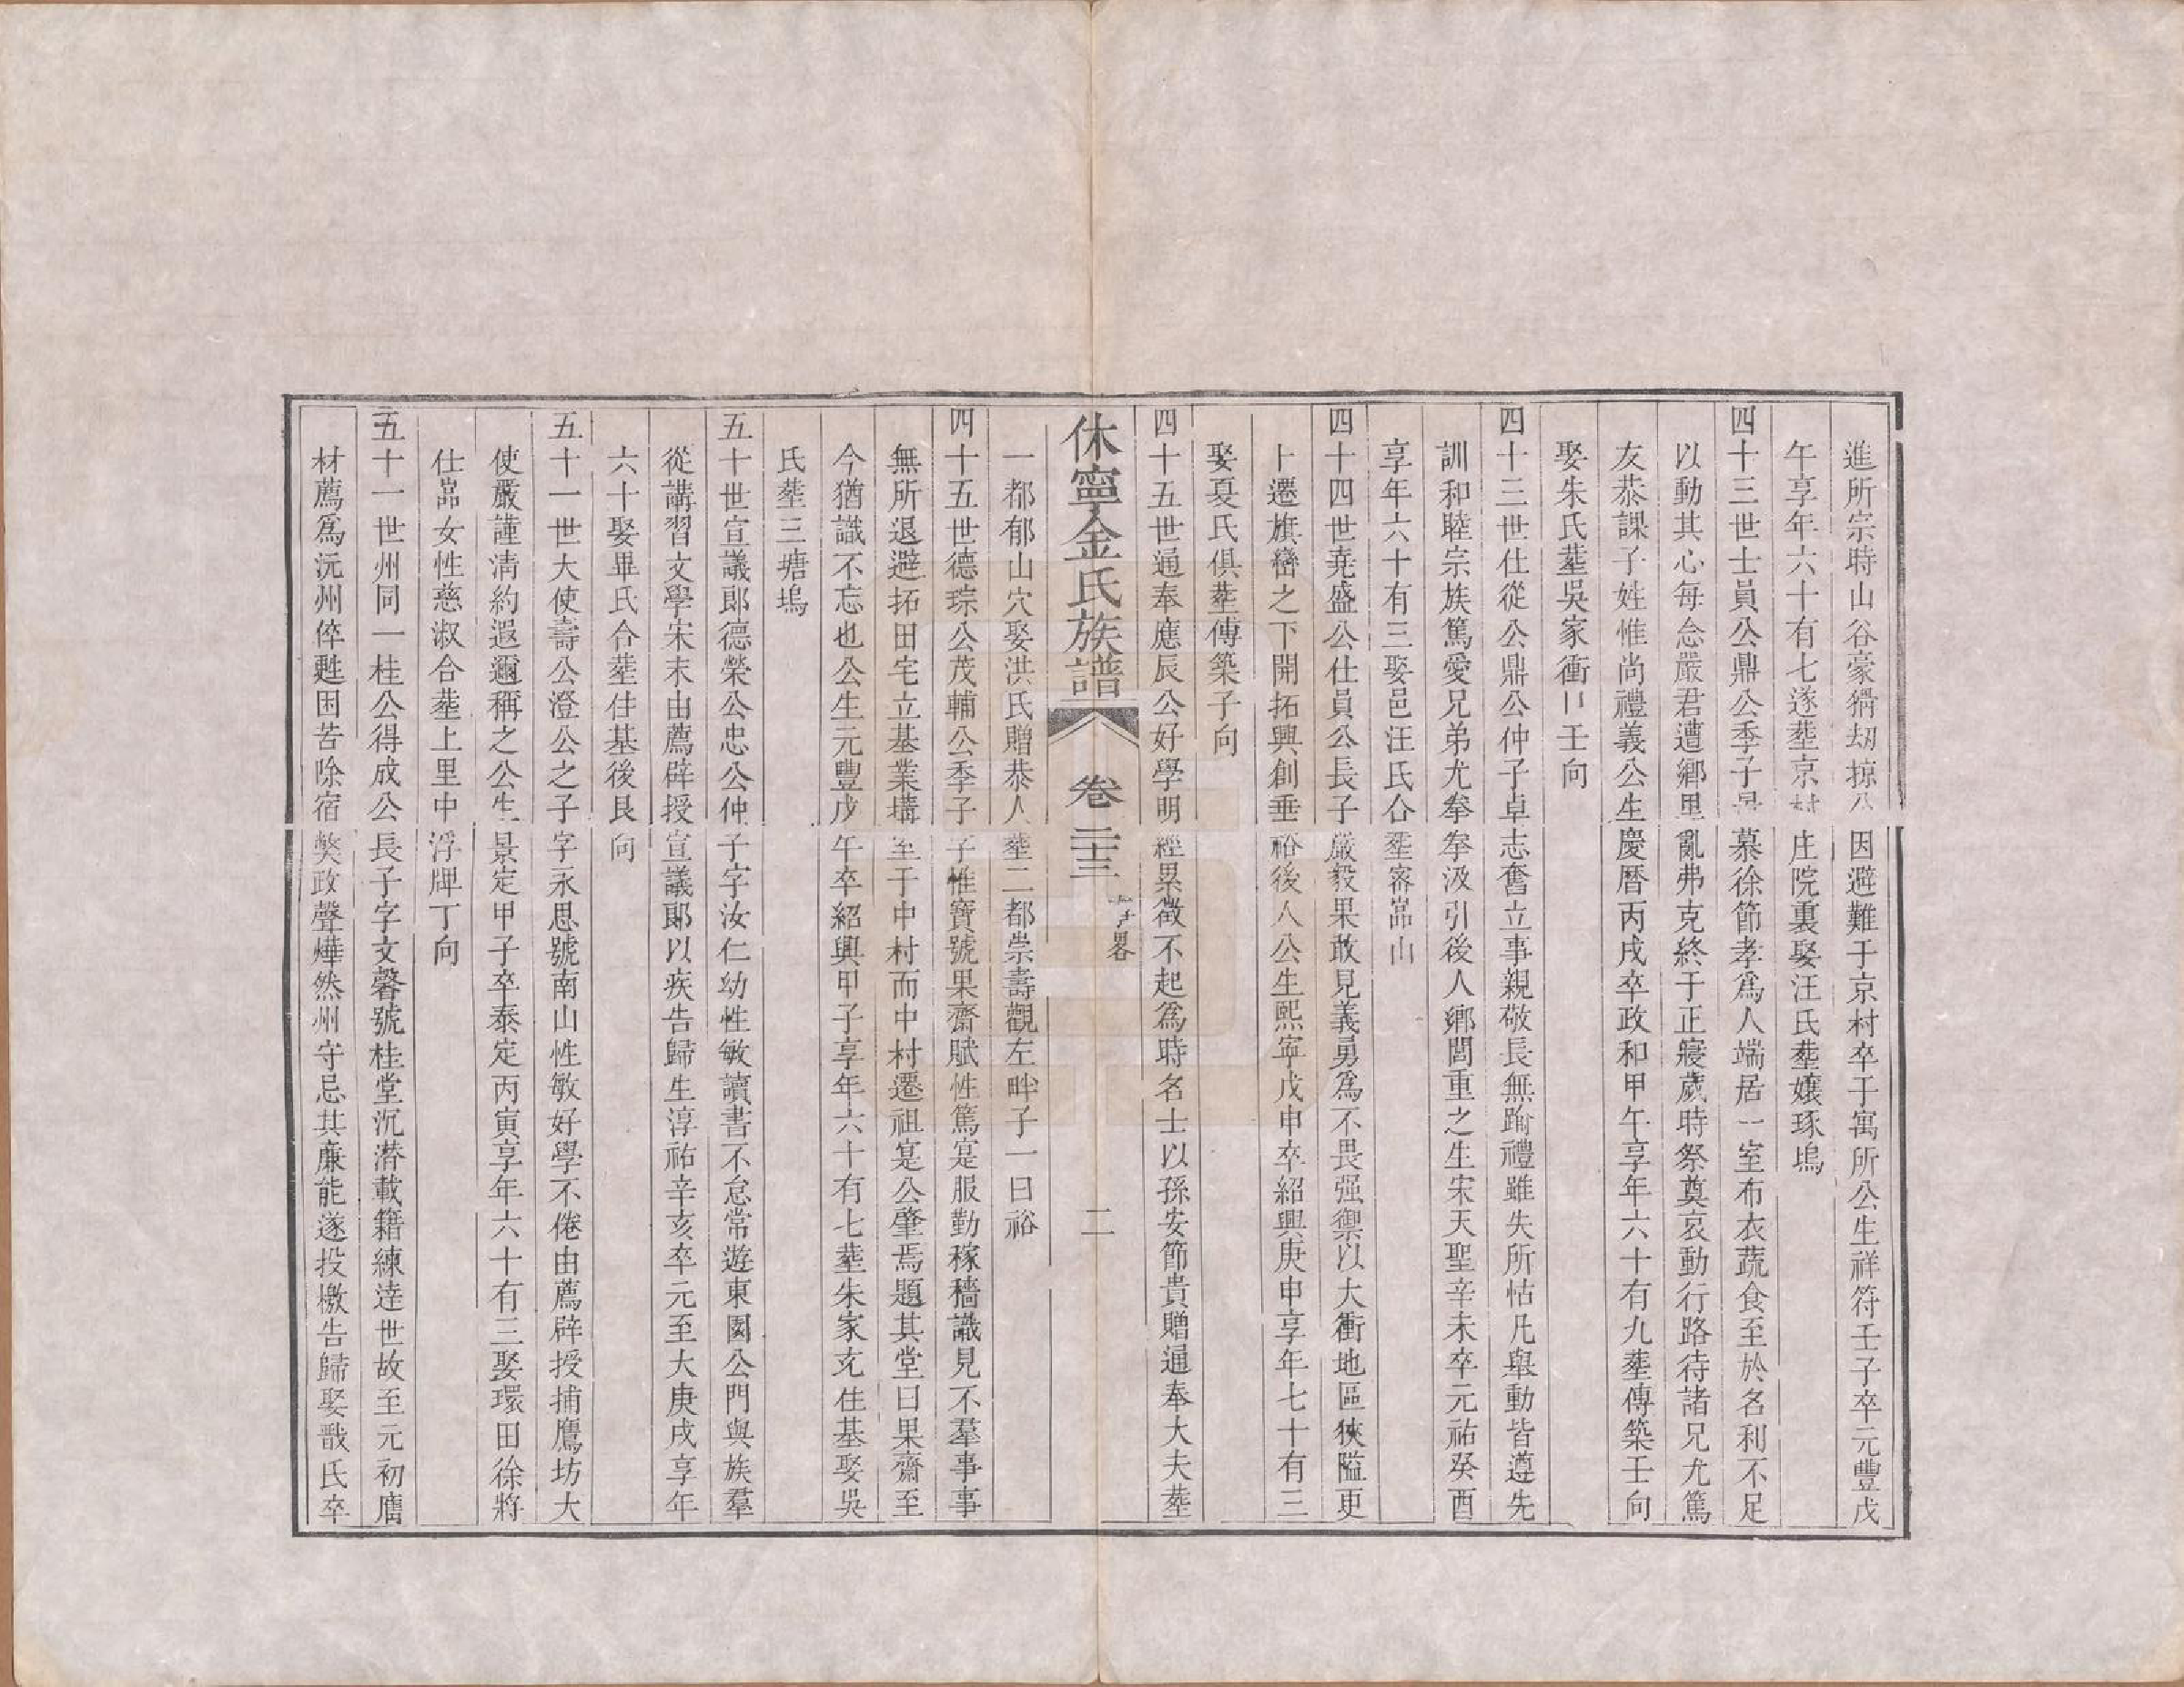 進所宗時山谷豪猾刼掠公因避難于京村卒于寓所公生祥符壬子卒元豐戊
午享年六十有七遂塟京村庄院裏娶汪氏塟孃琢塢
四十三世士員公鼎公季子景慕徐節孝爲人端居一室布衣蔬食至於名利不足
以動其心每念嚴君遭鄉里亂弗克終于正寢歲時祭奠哀動行路待諸兄尤篤
友恭課子姓惟尚禮義公生慶曆丙戌卒政和甲午享年六十有九塟傅築壬向
娶朱氏塟吳家衝壬向
四十三世仕從公鼎公仲子卓志奮立事親敬長無踰禮雖失所怙凡舉動皆遵先
訓和睦宗族篤愛兄弟尤拳拳汲引後人鄉閭重之生宋天聖辛未卒元祐癸酉
享年六十有三娶邑汪氏合塟審嵓山
四十四世堯盛公仕員公長子嚴毅果敢見義勇爲不畏强禦以大衝地區狹隘更
卜遷旗巒之下開拓興創垂裕後人公生熙寧戊申卒紹興庚申享年七十有三
娶夏氏俱塟傅築子向
四十五世通奉應辰公好學明經累徵不起爲時名士以孫安節貴贈通奉大夫塟
休寧金氏族譜 卷二十三 畧 二
一都郁山穴娶洪氏贈恭人塟二都崇壽觀左畔子一曰裕
四十五世德琮公茂輔公季子字惟寶號果齋賦性篤寔服勤稼穡識見不羣事事
無所退避拓田宅立基業搆至于中村而中村遷祖寔公肇焉題其堂曰果齋至
今猶識不忘也公生元豐戊午卒紹興甲子享年六十有七塟朱家充住基娶吳
氏塟三塘塢
五十世宣議郎德榮公忠公仲子字汝仁幼性敏讀書不怠常遊東園公門與族羣
從講習文學宋末由薦辟授宣議郎以疾告歸生淳祐辛亥卒元至大庚戌享年
六十娶畢氏合塟住基後艮向
五十一世大使壽公澄公之子字永思號南山性敏好學不倦由薦辟授捕鷹坊大
使嚴謹清約遐邇稱之公生景定甲子卒泰定丙寅享年六十有三娶環田徐將
仕嵓女性慈淑合塟上里中浮牌丁向
五十一世州同一桂公得成公長子字文馨號桂堂沉潛載籍練達世故至元初膺
材薦爲沅州倅甦困苦除宿獘政聲燁然州守忌其廉能遂投檄告歸娶戬氏卒